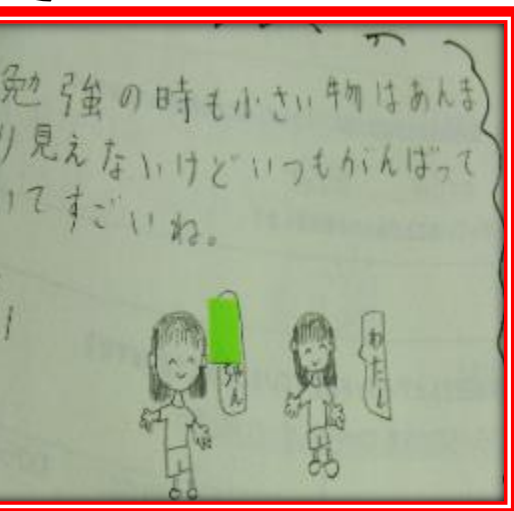 勉強の時も小さい物はあんま
り見えないけどいつもがんばって
いてすごいね。
ちゃん
わたし